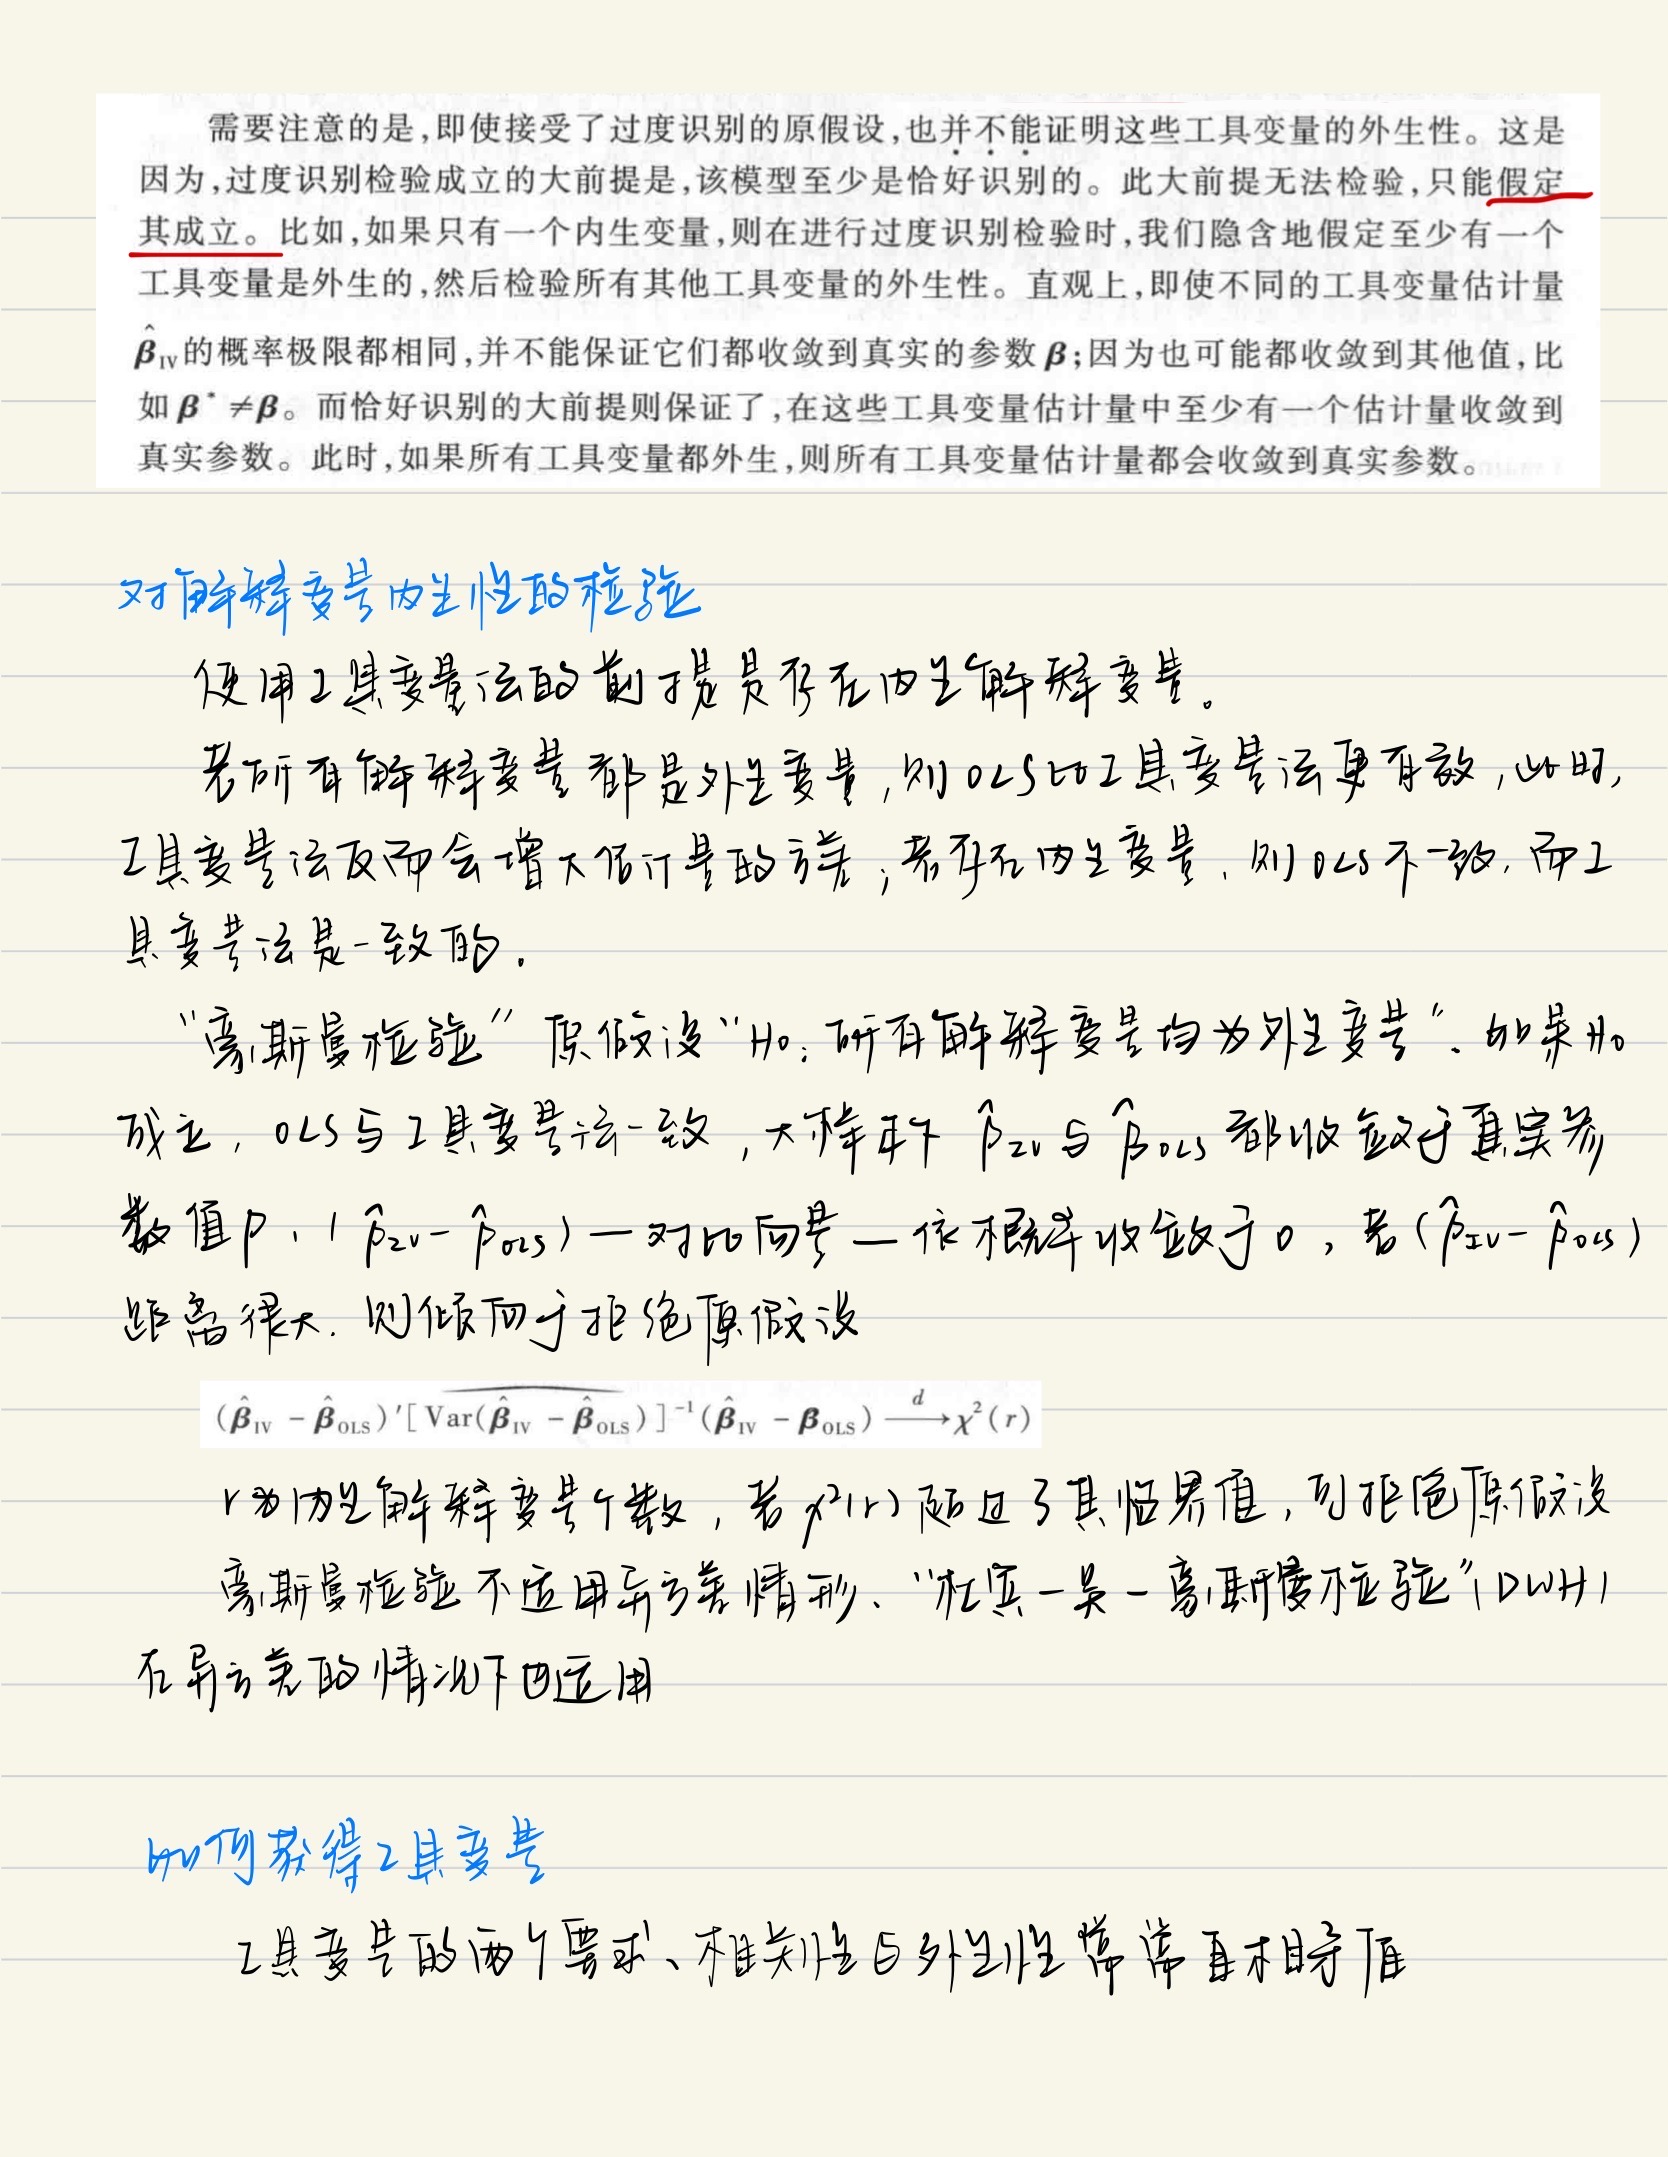 需要注意的是,即使接受了过度识别的原假设,也并不能证明这些工具变量的外生性。这是
因为,过度识别检验成立的大前提是,该模型至少是恰好识别的。此大前提无法检验,只能假定
其成立。比如,如果只有一个内生变量,则在进行过度识别检验时,我们隐含地假定至少有一个
工具变量是外生的,然后检验所有其他工具变量的外生性。直观上,即使不同的工具变量估计量
β̂IV的概率极限都相同,并不能保证它们都收敛到真实的参数β;因为也可能都收敛到其他值,比
如β*≠β。而恰好识别的大前提则保证了,在这些工具变量估计量中至少有一个估计量收敛到
真实参数。此时,如果所有工具变量都外生,则所有工具变量估计量都会收敛到真实参数。
对解释变量内生性的检验
使用工具变量法的前提是存在内生解释变量。
若所有解释变量都是外生变量,则OLS比工具变量法更有效,此时,
工具变量法反而会增大估计量的方差;若存在内生变量,则OLS不一致,而工
具变量法是一致的.
“豪斯曼检验” 原假设“H0:所有解释变量均为外生变量”、如果H0
成立,OLS与工具变量法一致,大样本下 β̂IV与β̂OLS都收敛于真实参
数值β、(β̂IV-β̂OLS)—对比向量—依概率收敛于0,若(β̂IV-β̂OLS)
距离很大.则倾向于拒绝原假设
(β̂IV - β̂OLS)′[Var(β̂IV - β̂OLS)]⁻¹(β̂IV - βOLS) →d χ²(r)
r为内生解释变量个数,若χ²(r)超过了其临界值,可拒绝原假设
豪斯曼检验不适用异方差情形、“杜宾-吴-豪斯曼检验”(DWH)
在异方差的情况下也适用
如何获得工具变量
工具变量的两个要求、相关性与外生性常常自相矛盾